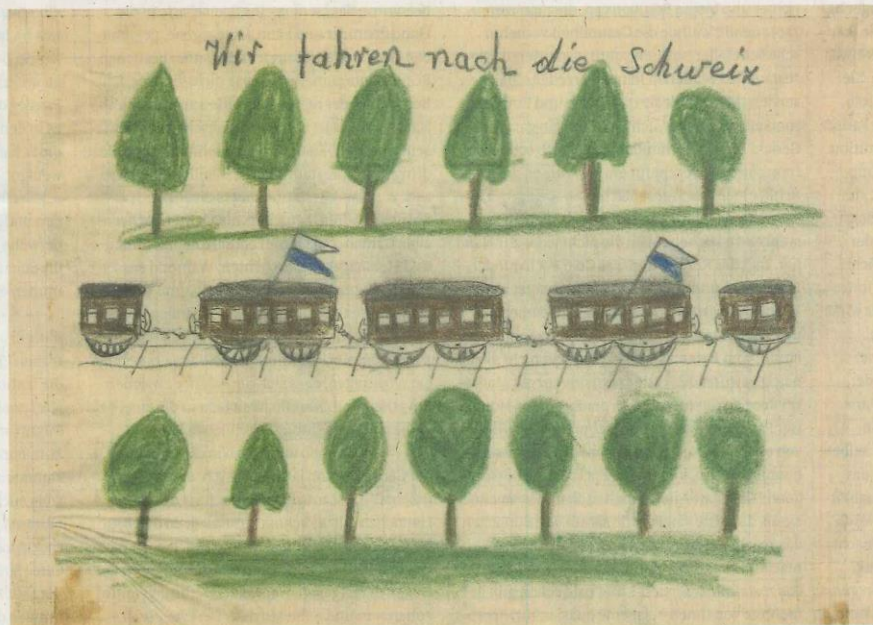 Wir fahren nach die Schweiz